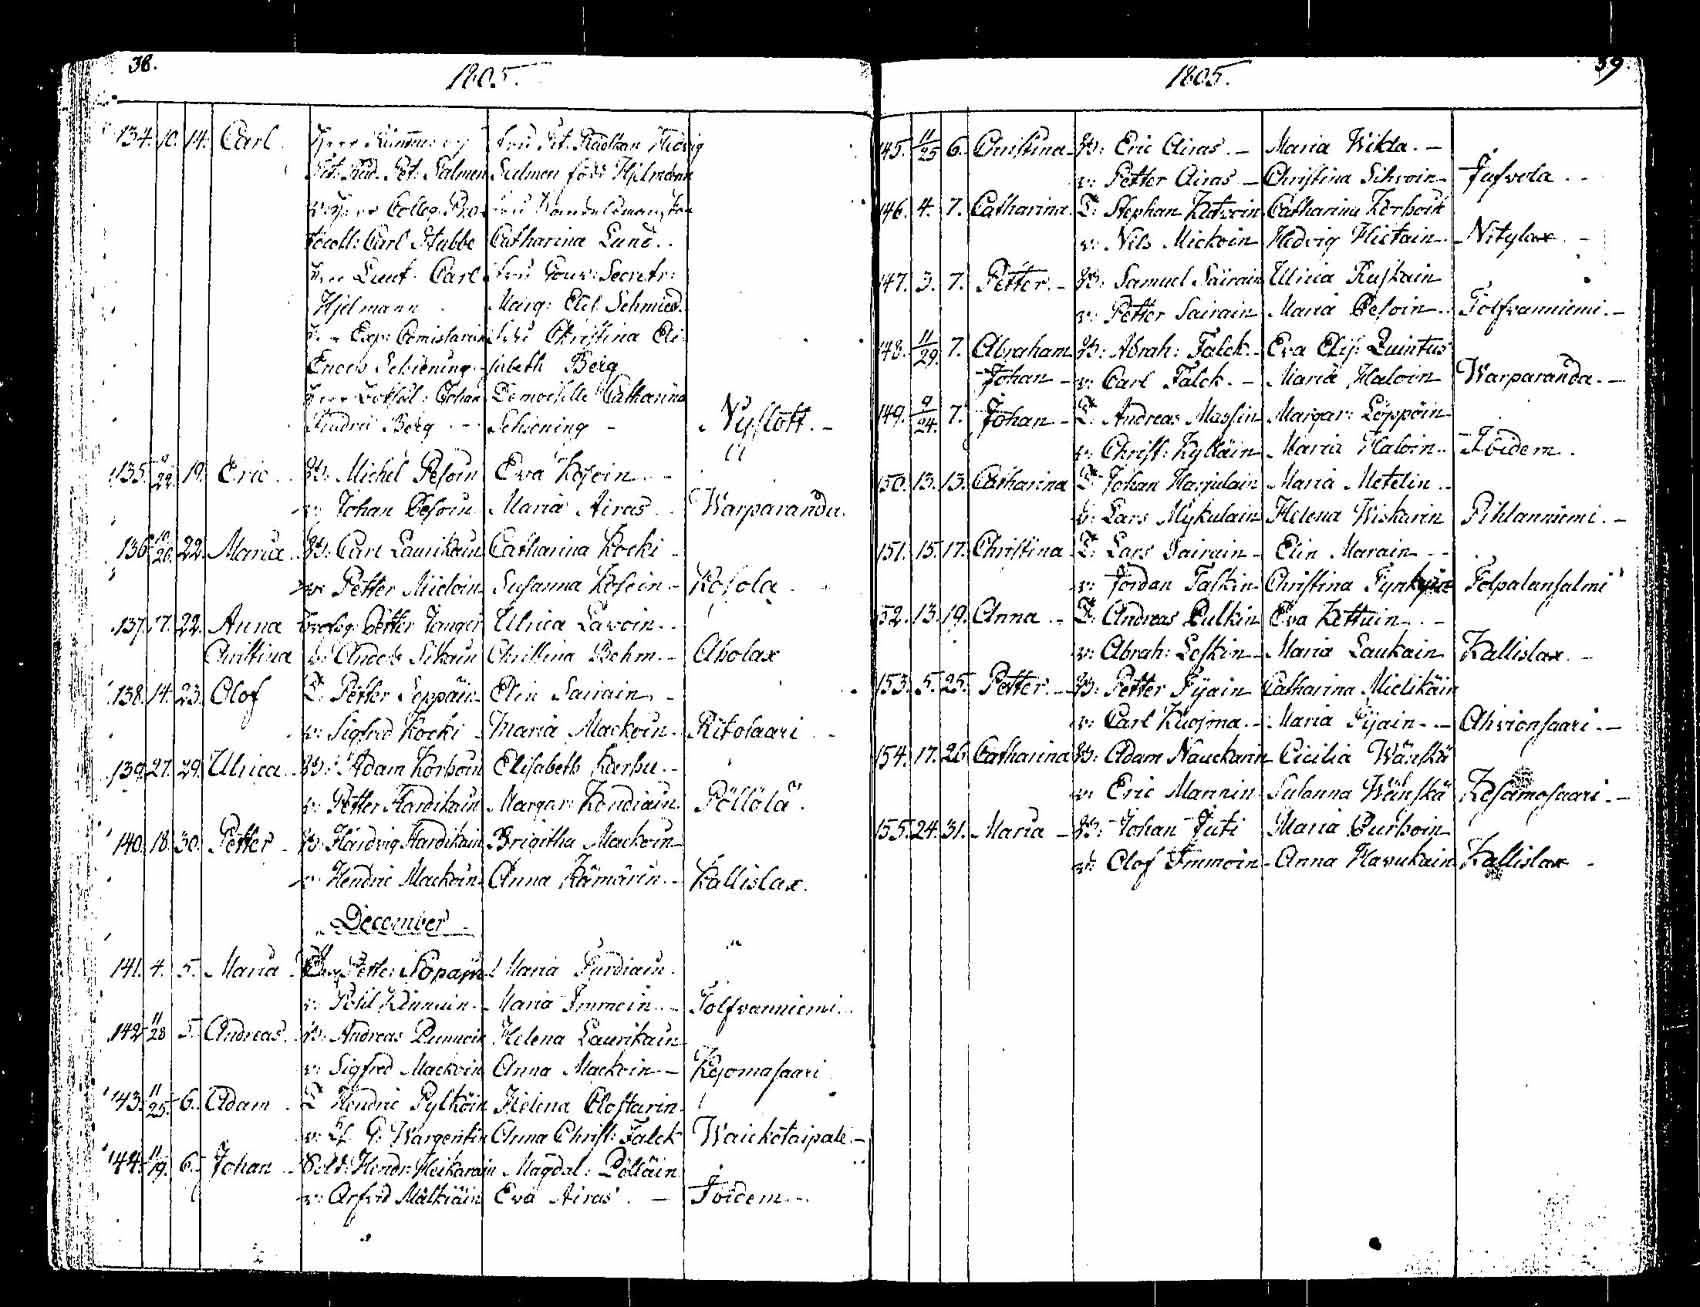 38.
1805.
134. 10. 14. Carl. Herr
Tit. Råd. Pet. Salmen Salmen född Hjelmann
v: Herr Colleg. Pro-
tocoll: Carl Stubbe Catharina Lund..
Herr Lieut: Carl Fru Gouv: Secretr:
Hjelmann Marg: Elis. Schmied.
Christina Eli-
Schiening sabeth Berg
Johan Demoiselle Catharina
Berg -- Schiening - Nyslott. -
135. 19. Eric. B: Michel Pesoin Eva Kosoin -
v: Johan Pesoin Maria Airas - Warparanda.
136. 22. Maria B: Carl Laurikain Catharina Kocki -
v: Petter Mieloin Susanna Kosoin - Kosola
137. 17. 22. Anna Petter Ulrica Lavoin..
Christina v: Anders Sikain Christina Bohm. - Aholax
138. 14. 23. Olof T: Petter Seppäin Elin Sairain -
v: Sigfred Kocki - Maria Mackoin - Ritosaari
139. 27. 29. Ulrica. B: Adam Korhoin Elisabeth Karhu. -
v: Petter Hardikain Margar: Kondiain Pöllölä.
140. 18. 30. Petter - B: Hardikain Brigitha Mackoin
v: Hendric Mackoin Anna Kämärin. - Kallislax.
December
141. 4. 5. Maria Petter Nopain Maria Turdiain.
v: Maria Immoin. - Tolfvanniemi.
142. 11/28 5. Andreas. B: Andreas Punnoin Helena Laurikain
v: Sigfred Mackoin Anna Mackoin - Kesomasaari
143. 11/25. 6. Adam T Hendric Pylköin Helena Clostarin
v: Lf. G: Wargentin Anna Christ: Falck Waickotaipale. -
144. 11/19. 6. Johan Sold: Hendr: Heikarain Magdal: Pölläin
v: Orfved Malkiäin Eva Airas. - Ibidem --
39.
1805.
145. 11/25 6. Christina B: Eric Airas. - Maria Wikla. -
v: Petter Airas - Christina Sihvoin - Jufvola --
146. 4. 7. Catharina T: Stephan Hatvoin Catharina Korhoin
v: Nils Mickoin Hedvig Hietain - Nitylax -
147. 3. 7. Petter. - B: Samuel Sairain Ulrica Ruskain
v: Petter Sairain Maria Pesoin - Tolfvanniemi. -
148. 11/29. 7. Abraham B: Abrah: Falck. - Eva Elis: Quintus
Johan - v: Carl Falck. - Maria Haloin Warparanda. -
149. 9/24. 7. Johan - T: Andreas Massin Margar: Loppöin
v: Christ: Kylläin Maria Haloin. Ibidem.
150. 13. 13. Catharina T Johan Harjulain Maria Metelin -
v: Lars Mykulain Helena Wiskarin Pihlanniemi. -
151. 15. 17. Christina T: Lars Sairain - Elin Marain -
v: Jordan Taskin Christina Tynkyin Tolpalansalmi
152. 13. 19. Anna - T: Andreas Pulkin Eva Kettuin --
v: Abrah: Leskin - Maria Laukain Kallislax. -
153. 5. 25. Petter. - B: Petter Tyain Catharina Mielikäin
v: Carl Kuosma. - Maria Tijain - - Ahvionsaari. -
154. 17. 26 Catharina B: Adam Nauckarin Cicilia Wänskä
v: Eric Mannin Sulanna Wänskä Kesamosaari. -
155. 24. 31. Maria - B: Johan Juti Maria Purhoin
v: Olof Immoin - Anna Havukain Kallislax -